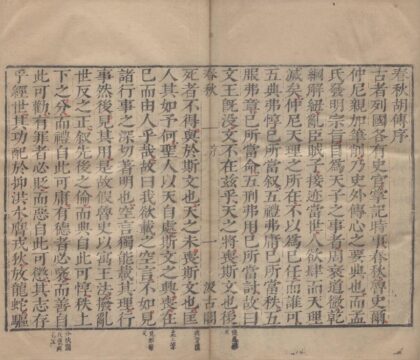 春秋胡傳序
古者列國各有史官掌記時事春秋魯史爾
仲尼親加筆削乃史外傳心之要典也而孟
氏發明宗旨目爲天子之事者周衰道微乾
綱解紐亂臣賊子接迹當世人欲肆而天理
滅矣仲尼天理之所在不以爲已任而誰可
五典弗惇已所當敘五禮弗庸已所當秩五
服弗章已所當命五刑弗用已所當討故曰
文王旣沒文不在茲乎天之將喪斯文也後
春秋 序 一 汲古閣
死者不得與於斯文也天之未喪斯文也匡
人其如予何聖人以天自處斯文之興喪在
已而由人乎哉故曰我欲載之空言不如見
諸行事之深切著明也空言獨能載其理行
事然後見其用是故假魯史以寓王法撥亂
世反之正敘先後之倫而典自此可惇秩上
下之分而禮自此可庸有德者必褒而善自
此可勸有罪者必貶而惡自此可懲其志存
乎經世其功配於抑洪水膺戎狄放龍蛇驅